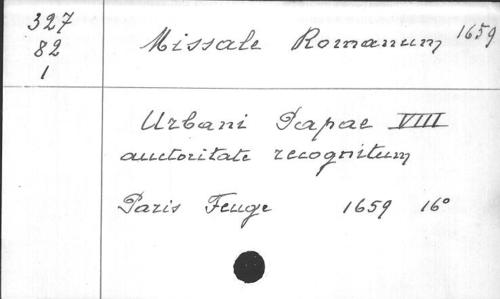 327
82
1
Missale Romanum 1659
Urbani Papae VIII
auctoritate recognitum
Paris Feuge 1659 16°